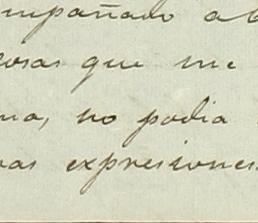 mpañado al
osas que me
na, no podia
vas expresiones